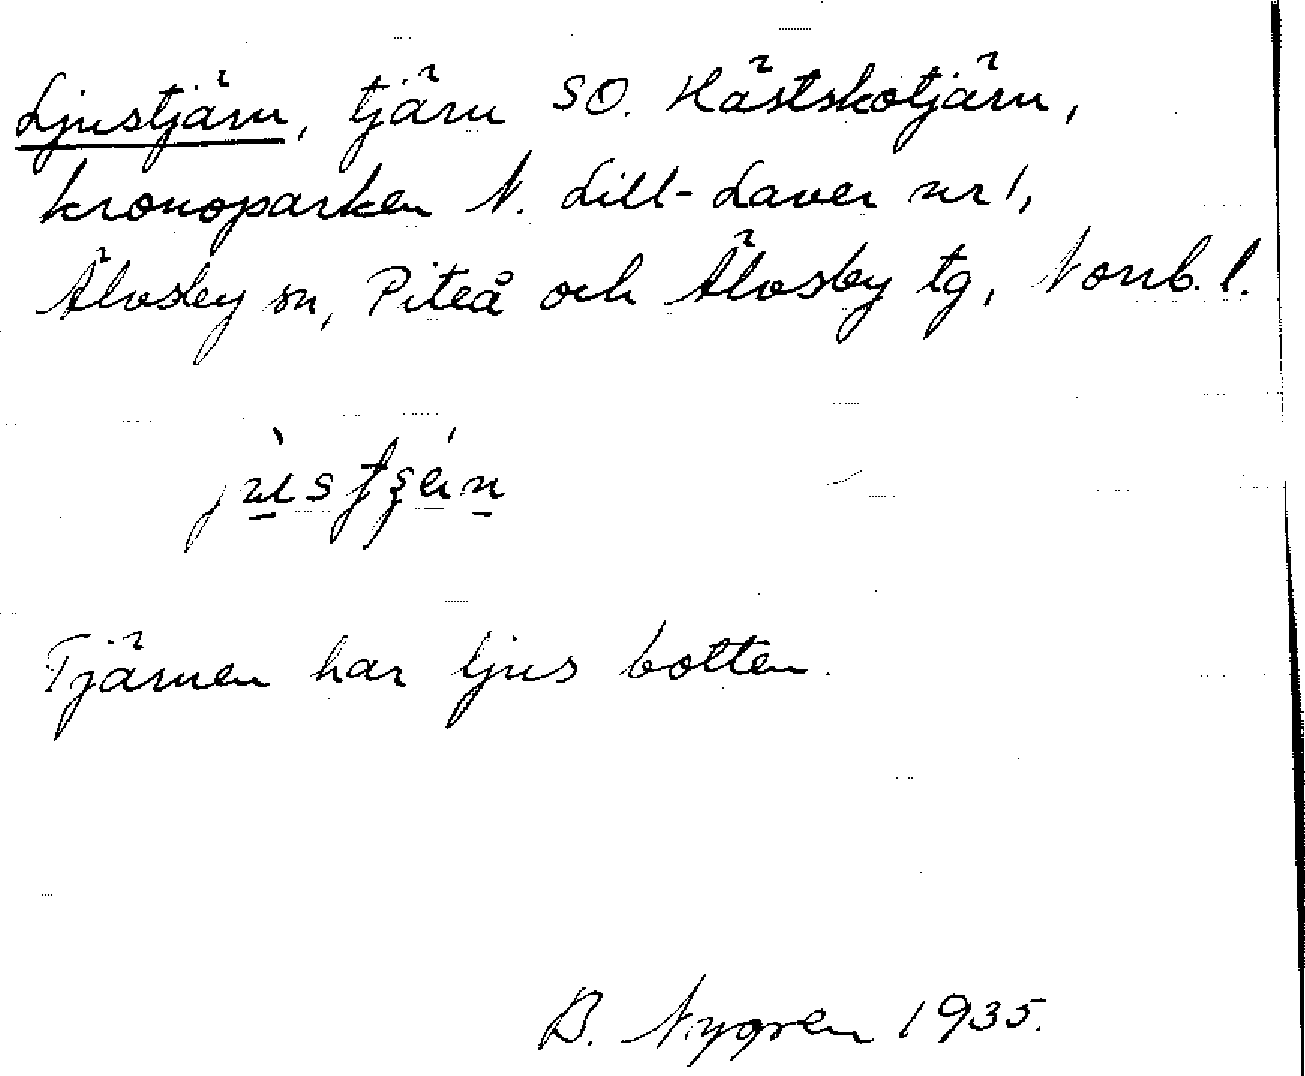 Ljustjärn, tjärn SO. Hästskotjärn,
kronoparken N. Lill-Laver nr 1,
Älvsby sn, Piteå och Älvsby tg, Norrb. l.
Tjärnen har ljus botten.
B. Nygren 1935.